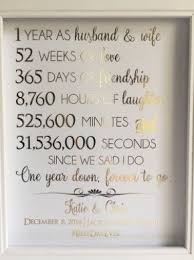 1 YEAR AS husband & wife
52 WEEKS OF love
365 DAYS OF friendship
8,760 HOURS OF laughter
525,600 MINUTES
31,536,000 SECONDS
SINCE WE SAID I DO
One year down, forever to go
Katie & Chris
DECEMBER 6, 2014